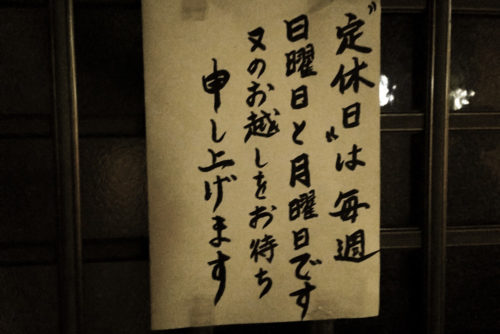 〝定休日〟は毎週
日曜日と月曜日です
又のお越しをお待ち
申し上げます